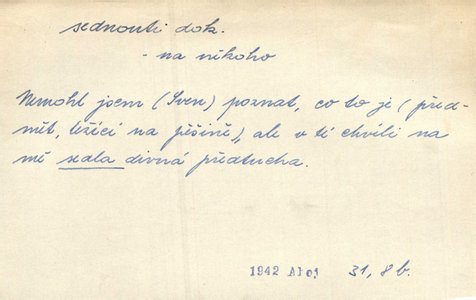 sednouti dok.
- na někoho
Nemohl jsem (Sven) poznat, co to je (před-
mět, ležící na pěšině), ale v té chvíli na
mě sedla divná předtucha.
1942 Ahoj 31, 8 b.